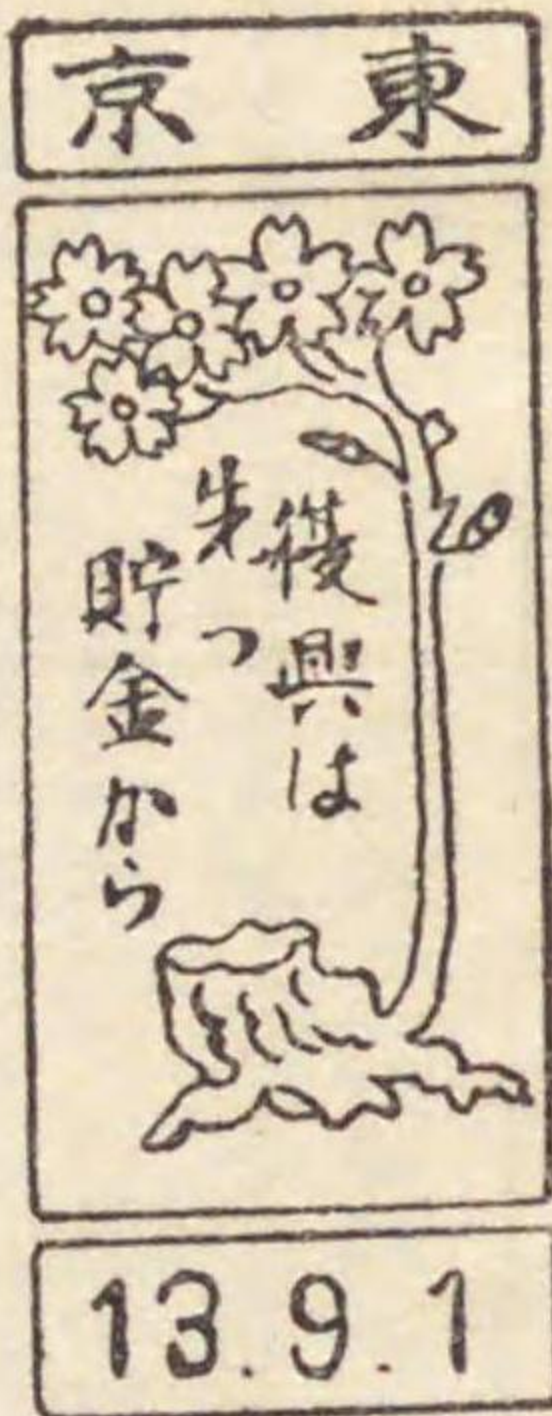 東京
復興は
先つ
貯金から
13.9.1